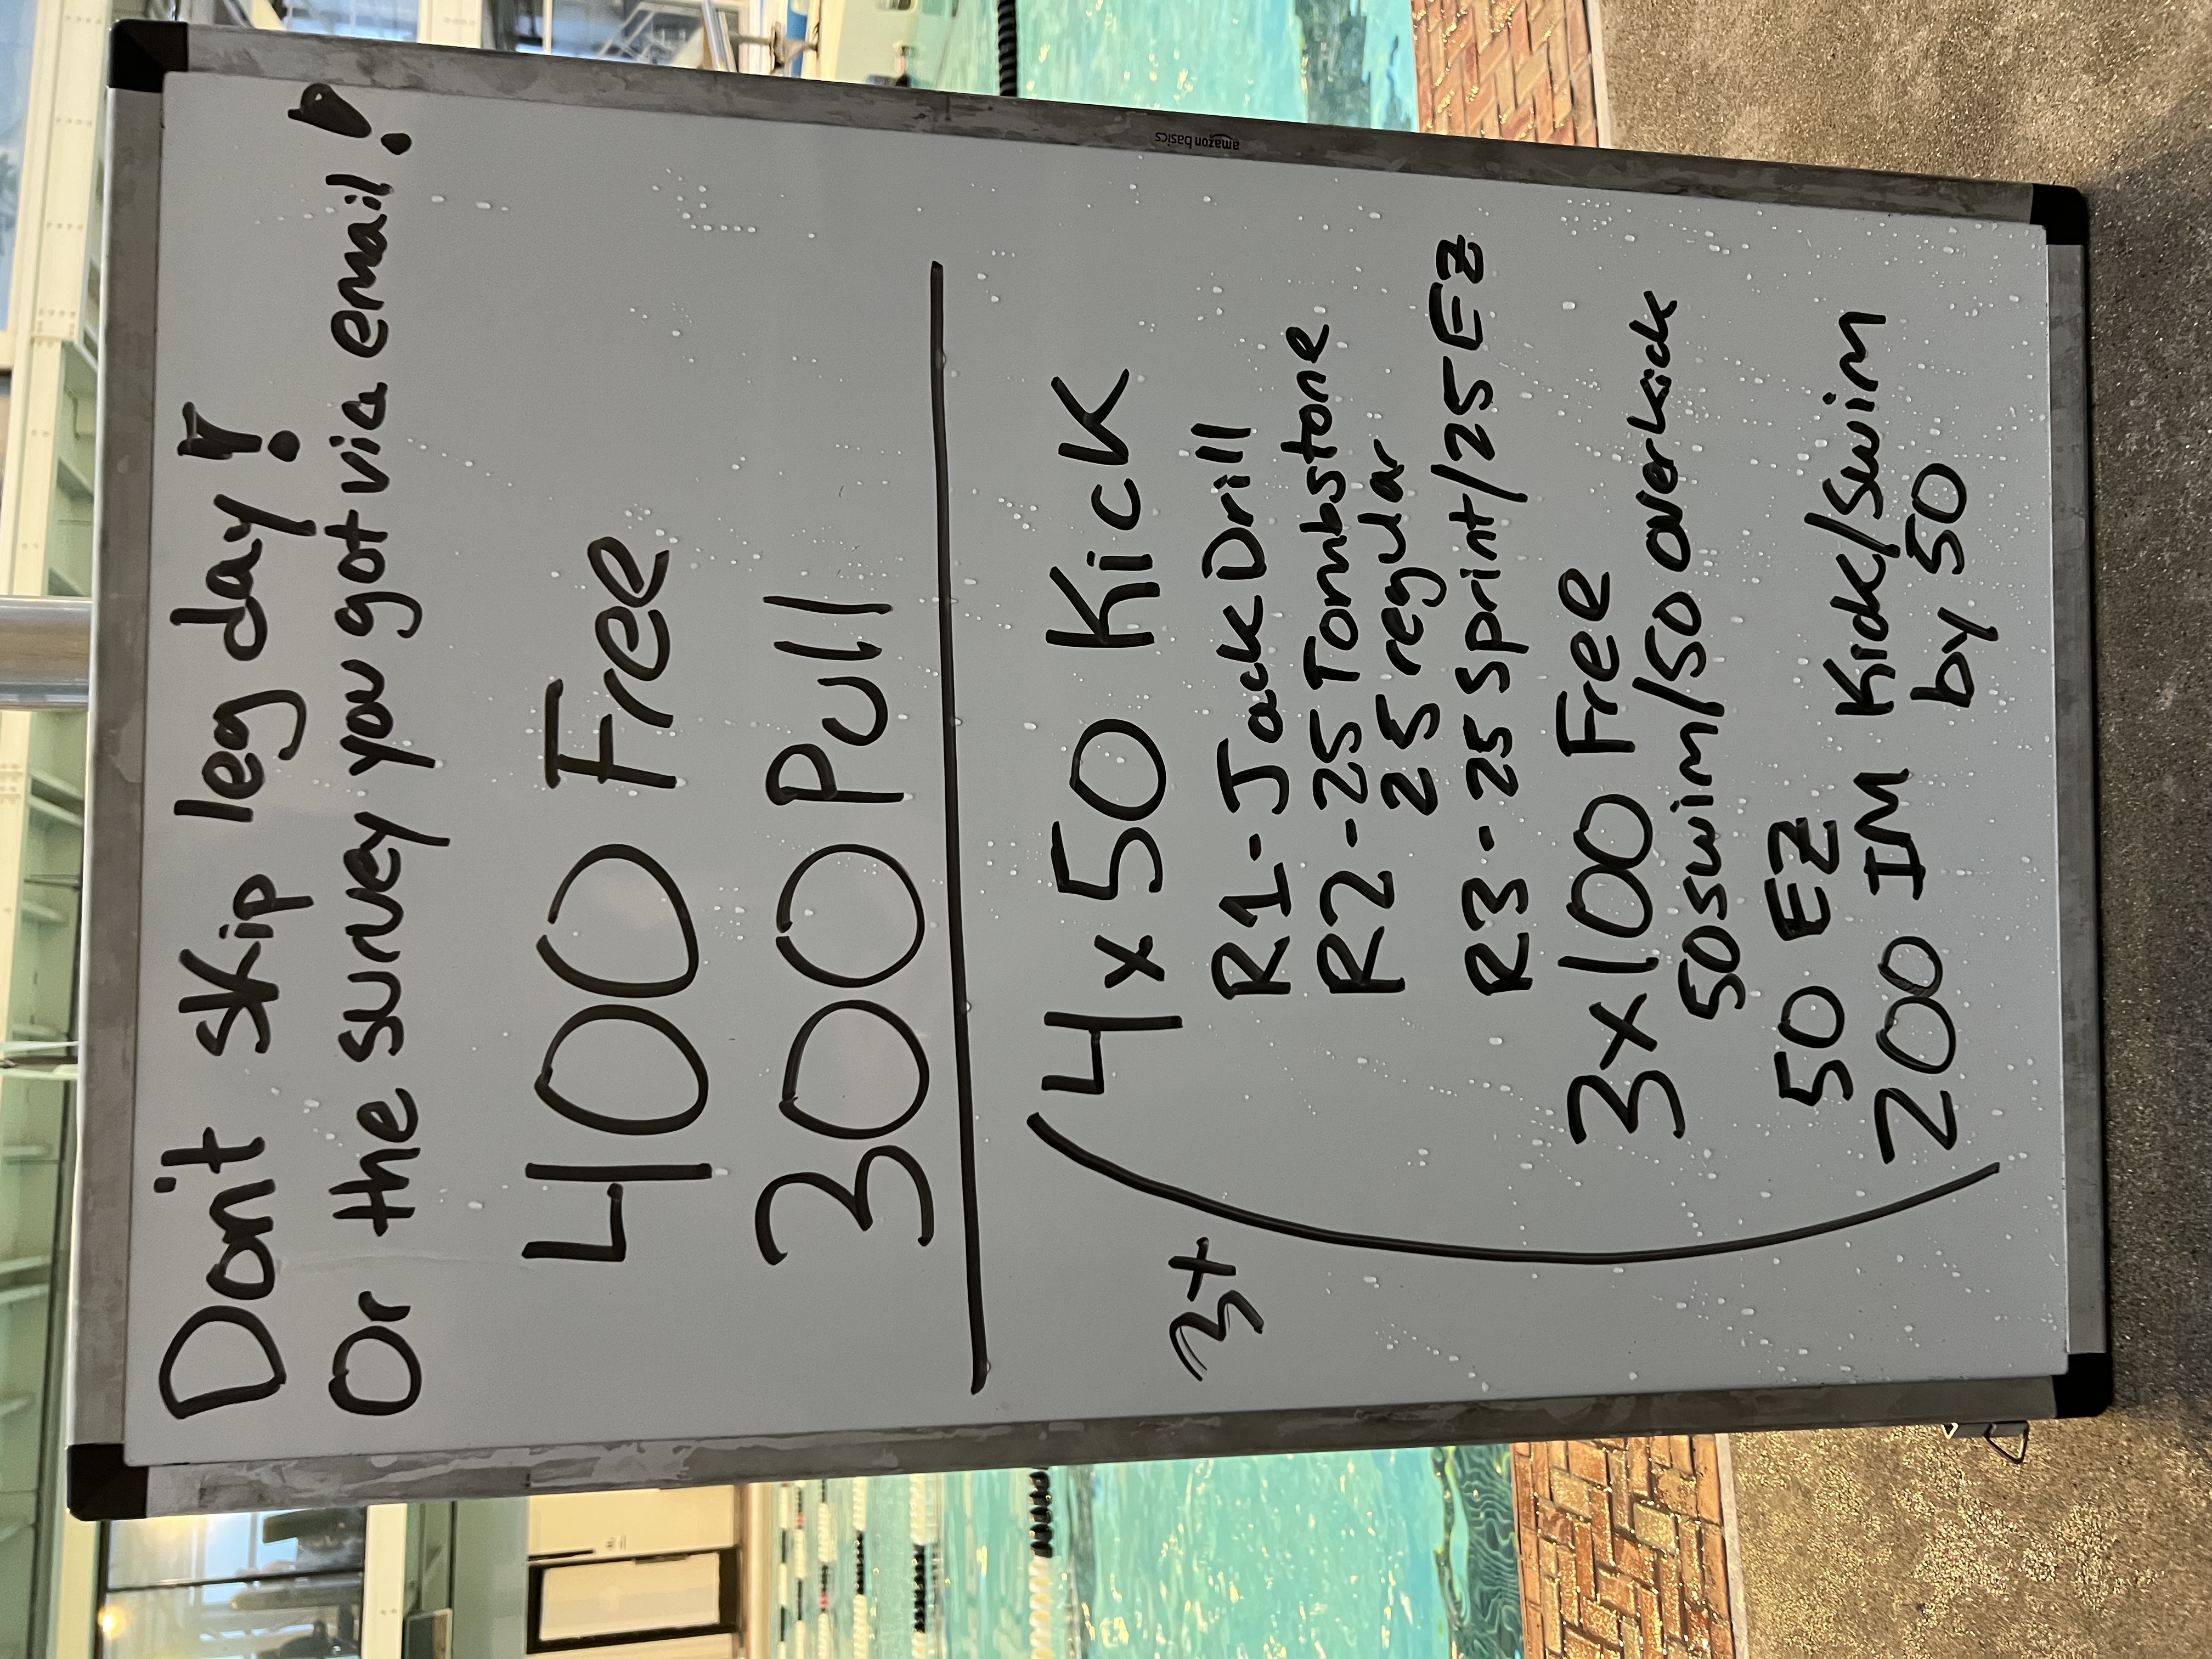 Don't skip leg day!
Or the survey you got via email!
400 Free
300 Pull
3x
4 x 50 Kick
R1 - Jack Drill
R2 - 25 Tombstone
25 regular
R3 - 25 Sprint/25 EZ
3x100 Free
50 swim/50 overkick
50 EZ
200 IM Kick/Swim
by 50
amazon basics